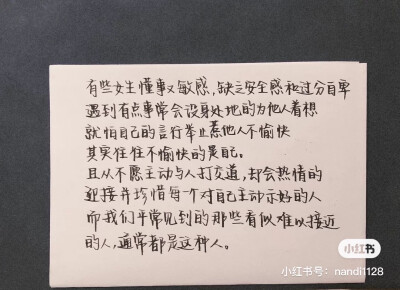 有些女生懂事又敏感，缺乏安全感和过分自卑
遇到有点事常会设身处地的为他人着想
就怕自己的言行举止惹他人不愉快
其实往往不愉快的是自己。
且从不愿主动与人打交道，却会热情的
迎接并珍惜每个对自己主动示好的人
而我们平常见到的那些看似难以接近
的人，通常都是这种人。
小红书
小红书号：nandi1128